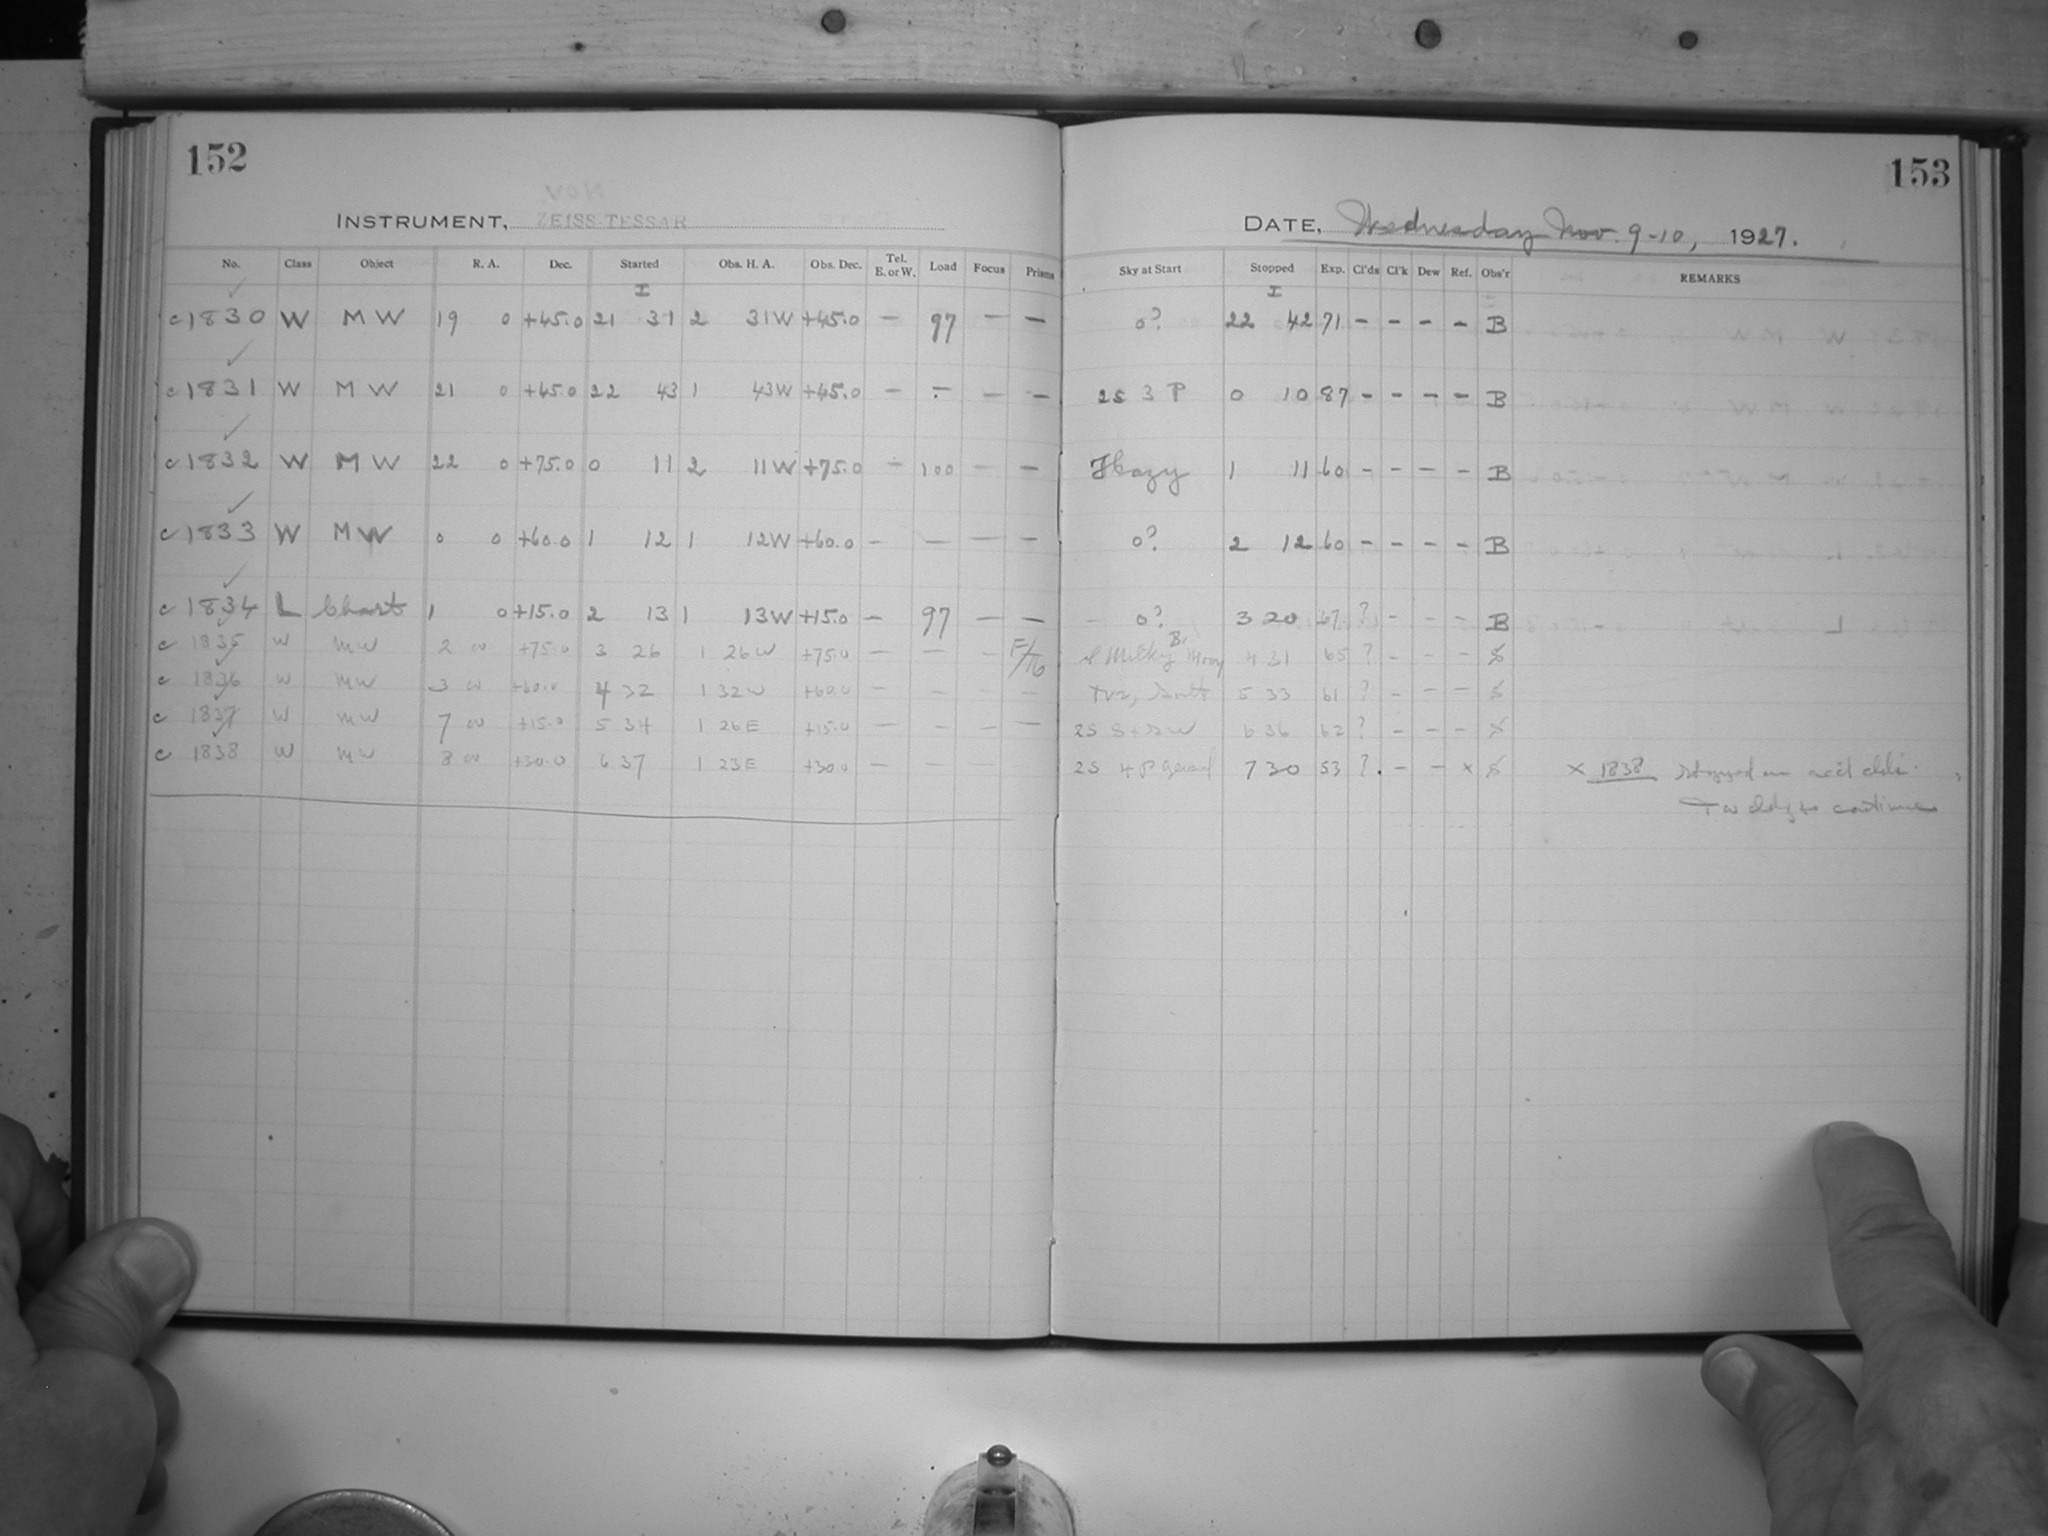 152
153
INSTRUMENT, ZEISS-TESSAR
DATE, Wednesday Nov. 9-10, 1927.
No. Class Object R. A. Dec. Started Obs. H. A. Obs. Dec. Tel. E. or W. Load Focus Prisms Sky at Start Stopped Exp. Cl'ds Cl'k Dew Ref. Obs'r REMARKS
I I
c 1830 W M W 19 0 +45.0 21 31 2 31W +45.0 — 97 — — 0? 22 42 71 - - - - B
c 1831 W M W 21 0 +45.0 22 43 1 43W +45.0 — — — — 2S 3 P 0 10 87 - - - - B
c 1832 W M W 22 0 +75.0 0 11 2 11W +75.0 — 100 — — Hazy 1 11 60 - - - - B
c 1833 W M W 0 0 +60.0 1 12 1 12W +60.0 — — — — 0? 2 12 60 - - - - B
c 1834 L Chart 1 0 +15.0 2 13 1 13W +15.0 — 97 — — 0? 3 20 67 ? - - - B
c 1835 W MW 2 00 +75.0 3 26 1 26W +75.0 — — — F/16 Milky Br. Moon 4 31 65 ? - - - S
c 1836 W MW 3 00 +60.0 4 32 1 32W +60.0 — — — — 5 33 61 ? - - - S
c 1837 W MW 7 00 +15.0 5 34 1 26E +15.0 — — — — 2S S+SW 6 36 62 ? - - - S
c 1838 W MW 8 00 +30.0 6 37 1 23E +30.0 — — — 2S 4 P General 7 30 53 ? - - × S × 1838 stopped on acct clds.
Too cldy to continue